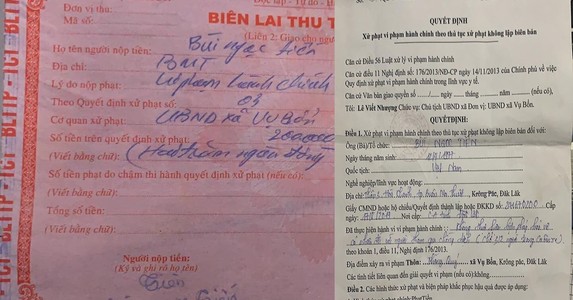 Độc lập - Tự do - H
Đơn vị thu:
Mã số:
BIÊN LAI THU T
(Liên 2: Giao cho ngườ
Họ tên người nộp tiền: Bùi Ngọc Tiến
Địa chỉ: BMT
Lý do nộp phạt: Vi phạm hành chính
Theo Quyết định xử phạt số: 04
Cơ quan xử phạt: UBND xã Vụ Bổn
Số tiền trên quyết định xử phạt: 200.000
(Viết bằng chữ) (Hai trăm ngàn đồng)
Số tiền phạt do chậm thi hành quyết định xử phạt (nếu có):
(Viết bằng chữ):
Tổng số tiền:
(Viết bằng chữ):
Người nộp tiền:
(Ký và ghi rõ họ tên)
Tiến
BLTTP - TCT BLTTP - TCT
QUYẾT ĐỊNH
Xử phạt vi phạm hành chính theo thủ tục xử phạt không lập biên bản
Căn cứ Điều 56 Luật xử lý vi phạm hành chính
Căn cứ Điều 11 Nghị định số: 176/2013/NĐ-CP ngày 14/11/2013 của Chính phủ về việc
Quy định xử phạt hành chính trong lĩnh vực y tế.
Căn cứ Văn bản giao quyền số / ngày tháng năm (nếu có),
Tôi: Lê Viết Nhượng Chức vụ: Chủ tịch UBND xã Đơn vị: UBND xã Vụ Bổn.
QUYẾT ĐỊNH:
Điều 1. Xử phạt vi phạm hành chính theo thủ tục xử phạt không lập biên bản đối với:
Ông (Bà)/Tổ chức: BÙI NGỌC TIẾN
Ngày tháng năm sinh:
Quốc tịch: Việt Nam
Nghề nghiệp/lĩnh vực hoạt động:
Địa chỉ: Krông Pắc, Đăk Lăk
Giấy CMND hoặc hộ chiếu/Quyết định thành lập hoặc ĐKKD số:
Cấp ngày: Nơi cấp:
Đã thực hiện hành vi vi phạm hành chính:
theo khoản 1, điều 11, Nghị định 176/2013.
Địa điểm xảy ra vi phạm Thôn: xã Vụ Bổn, Krông Pắc, Đăk Lăk
Các tình tiết liên quan đến giải quyết vi phạm (nếu có) không.
Điều 2. Các hình thức xử phạt và biện pháp khắc phục hậu quả được áp dụng: